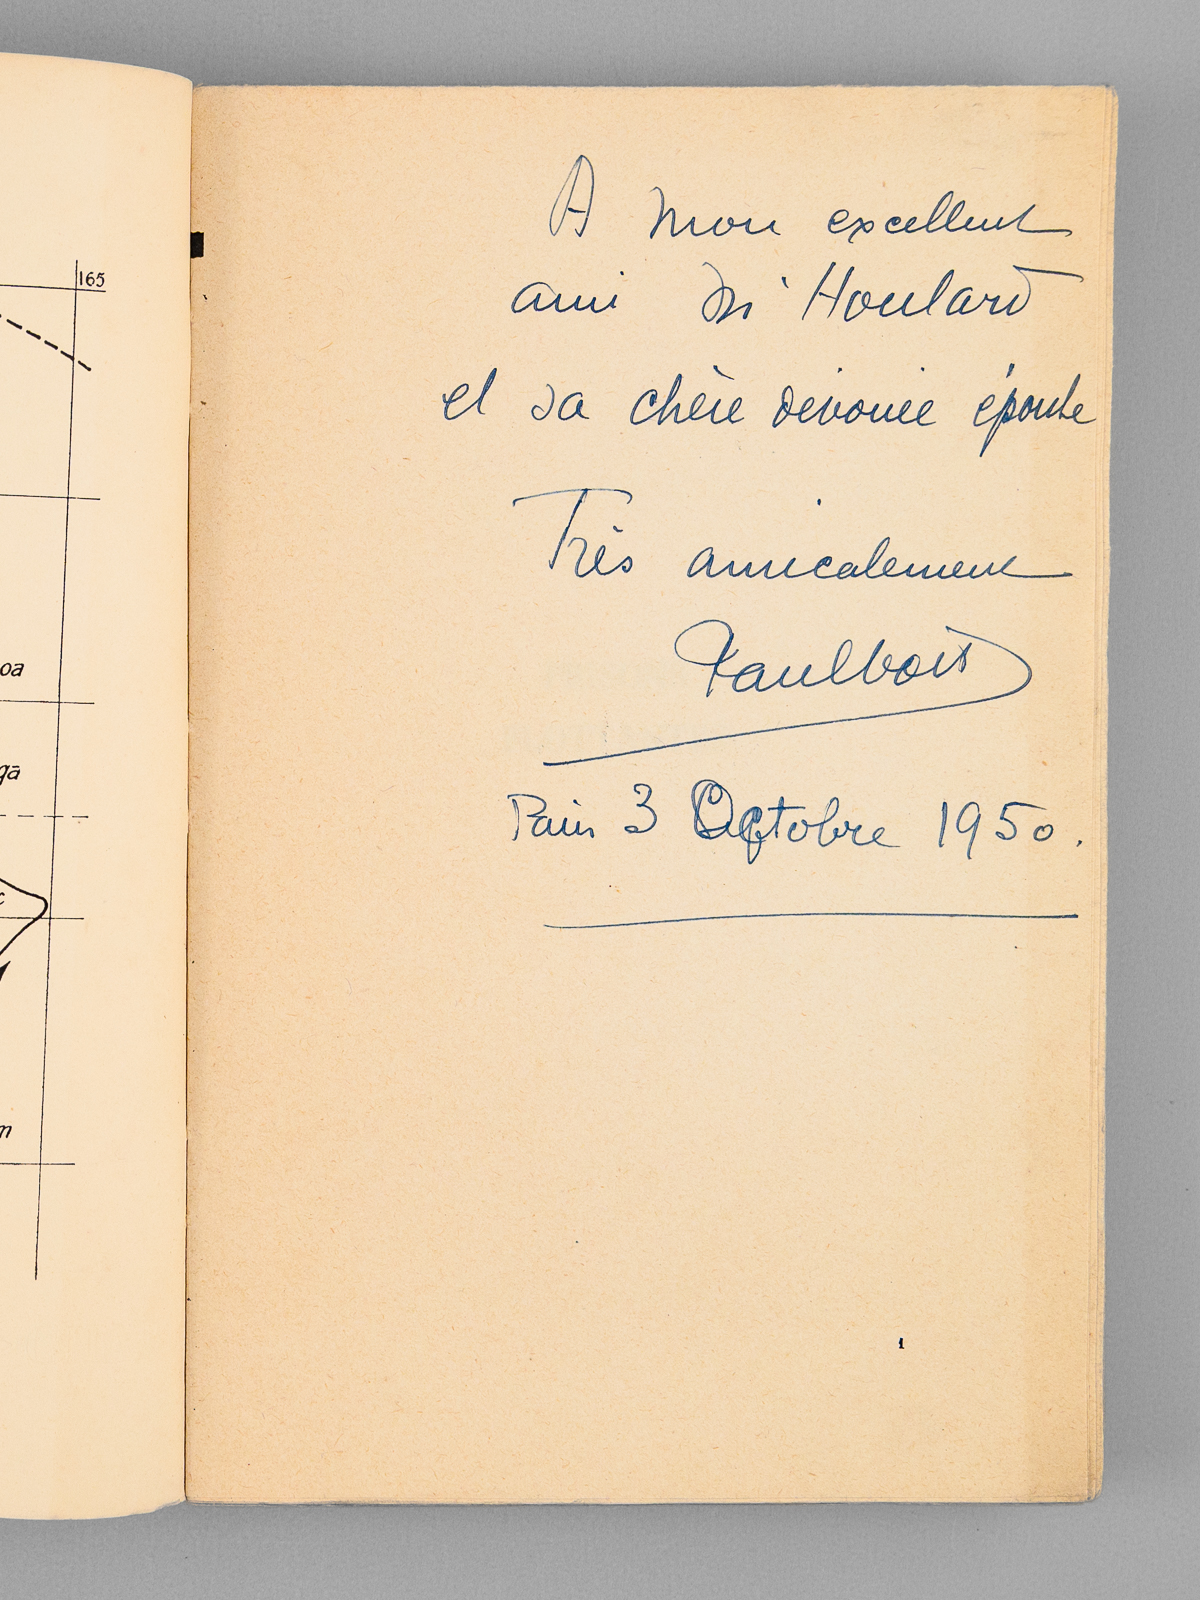 165
oa
gā
c
m
A mon excellent
ami Mr Houlard
et sa chère dévouée épouse
Très amicalement
Paris 3 Octobre 1950.
1